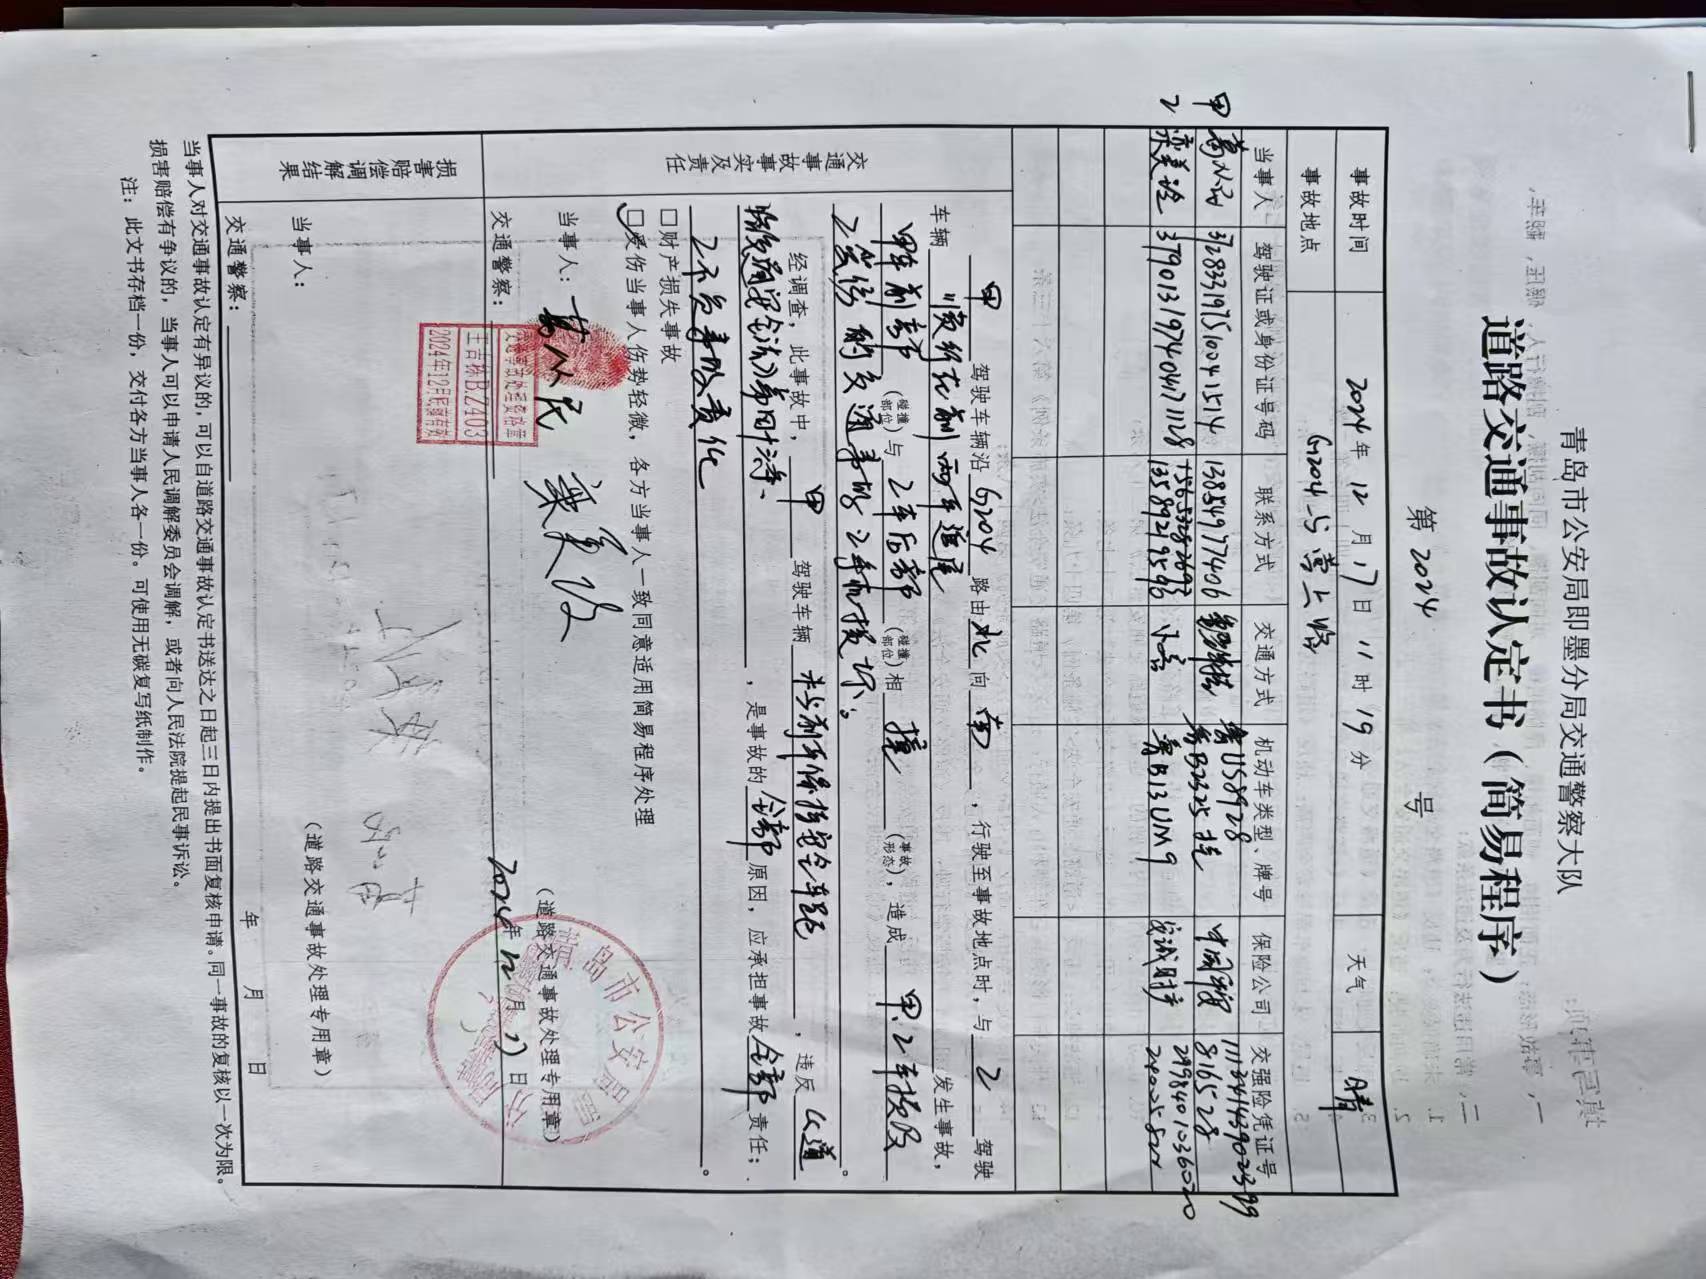 青岛市公安局即墨分局交通警察大队
道路交通事故认定书（简易程序）
第 2024 号
事故时间 2024年 12 月 17 日 11 时 19 分 天气 晴
事故地点 G204与营上路
当事人 驾驶证或身份证号码 联系方式 交通方式 机动车类型、牌号 保险公司 交强险凭证号
甲 372833197510041514 13854977406 鲁US8928 鲁B2325挂 816528
乙 379013197404171128 15653282693 13589219593 小客 鲁B13UM9 2402582
交通事故事实及责任
甲 驾驶车辆沿 G204 路由 北 向 南 ，行驶至事故地点时，与 乙 驾驶
车辆 顺行在前两车追尾 发生事故，
甲车前部 （碰撞部位）与 乙车后部 （碰撞部位）相 撞 （事故形态），造成 甲.乙车损及
乙受伤的交通事故.乙车 损坏。
经调查，此事故中， 甲 驾驶车辆 未与前车保持安全车距 ，违反《道
路交通安全法》第四十三条 ，是事故的 全部 原因，应承担事故 全部 责任；
乙不负事故责任 。
□财产损失事故
□受伤当事人伤势轻微，各方当事人一致同意适用简易程序处理
当事人：
交通警察：
王吉栋B2403
2024年12月底前有效
（道路交通事故处理专用章）
2024年 12月 17 日
青岛市公安局
损害赔偿调解结果
当事人：
交通警察：
（道路交通事故处理专用章）
年 月 日
当事人对交通事故认定有异议的，可以自道路交通事故认定书送达之日起三日内提出书面复核申请。同一事故的复核以一次为限。
损害赔偿有争议的，当事人可以申请人民调解委员会调解，或者向人民法院提起民事诉讼。
注：此文书存档一份，交付各方当事人各一份。可使用无碳复写纸制作。